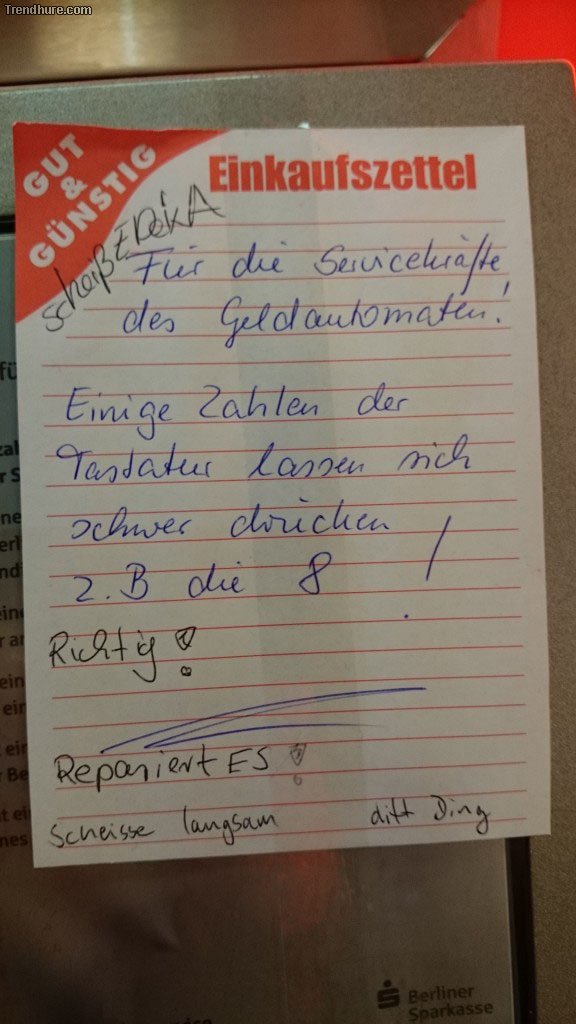 Trendhure.com
GUT
&
GÜNSTIG
Einkaufszettel
scheiß EDEKA
Für die Servicekräfte
des Geldautomaten!
Einige Zahlen der
Tastatur lassen sich
schwer drücken
z.B die 8 !
Richtig !
Repariert ES !
Scheisse langsam ditt Ding
Berliner
Sparkasse